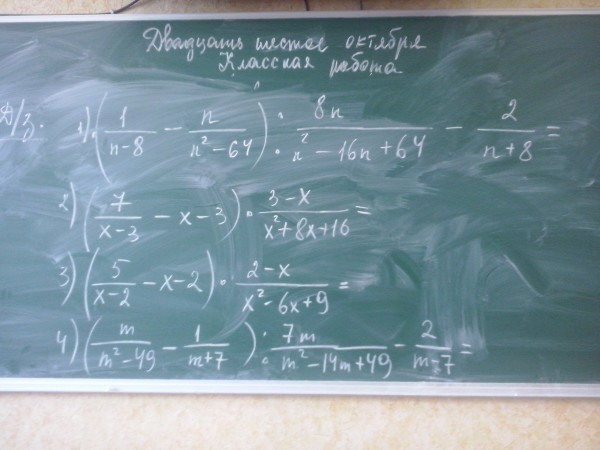 Двадцать шестое октября
Классная работа
Д/з: 1) (1/(n-8) - n/(n²-64)) : 8n/(n²-16n+64) - 2/(n+8) =
2) (7/(x-3) - x - 3) · (3-x)/(x²+8x+16) =
3) (5/(x-2) - x - 2) · (2-x)/(x²-6x+9) =
4) (m/(m²-49) - 1/(m+7)) : 7m/(m²-14m+49) - 2/(m-7) =